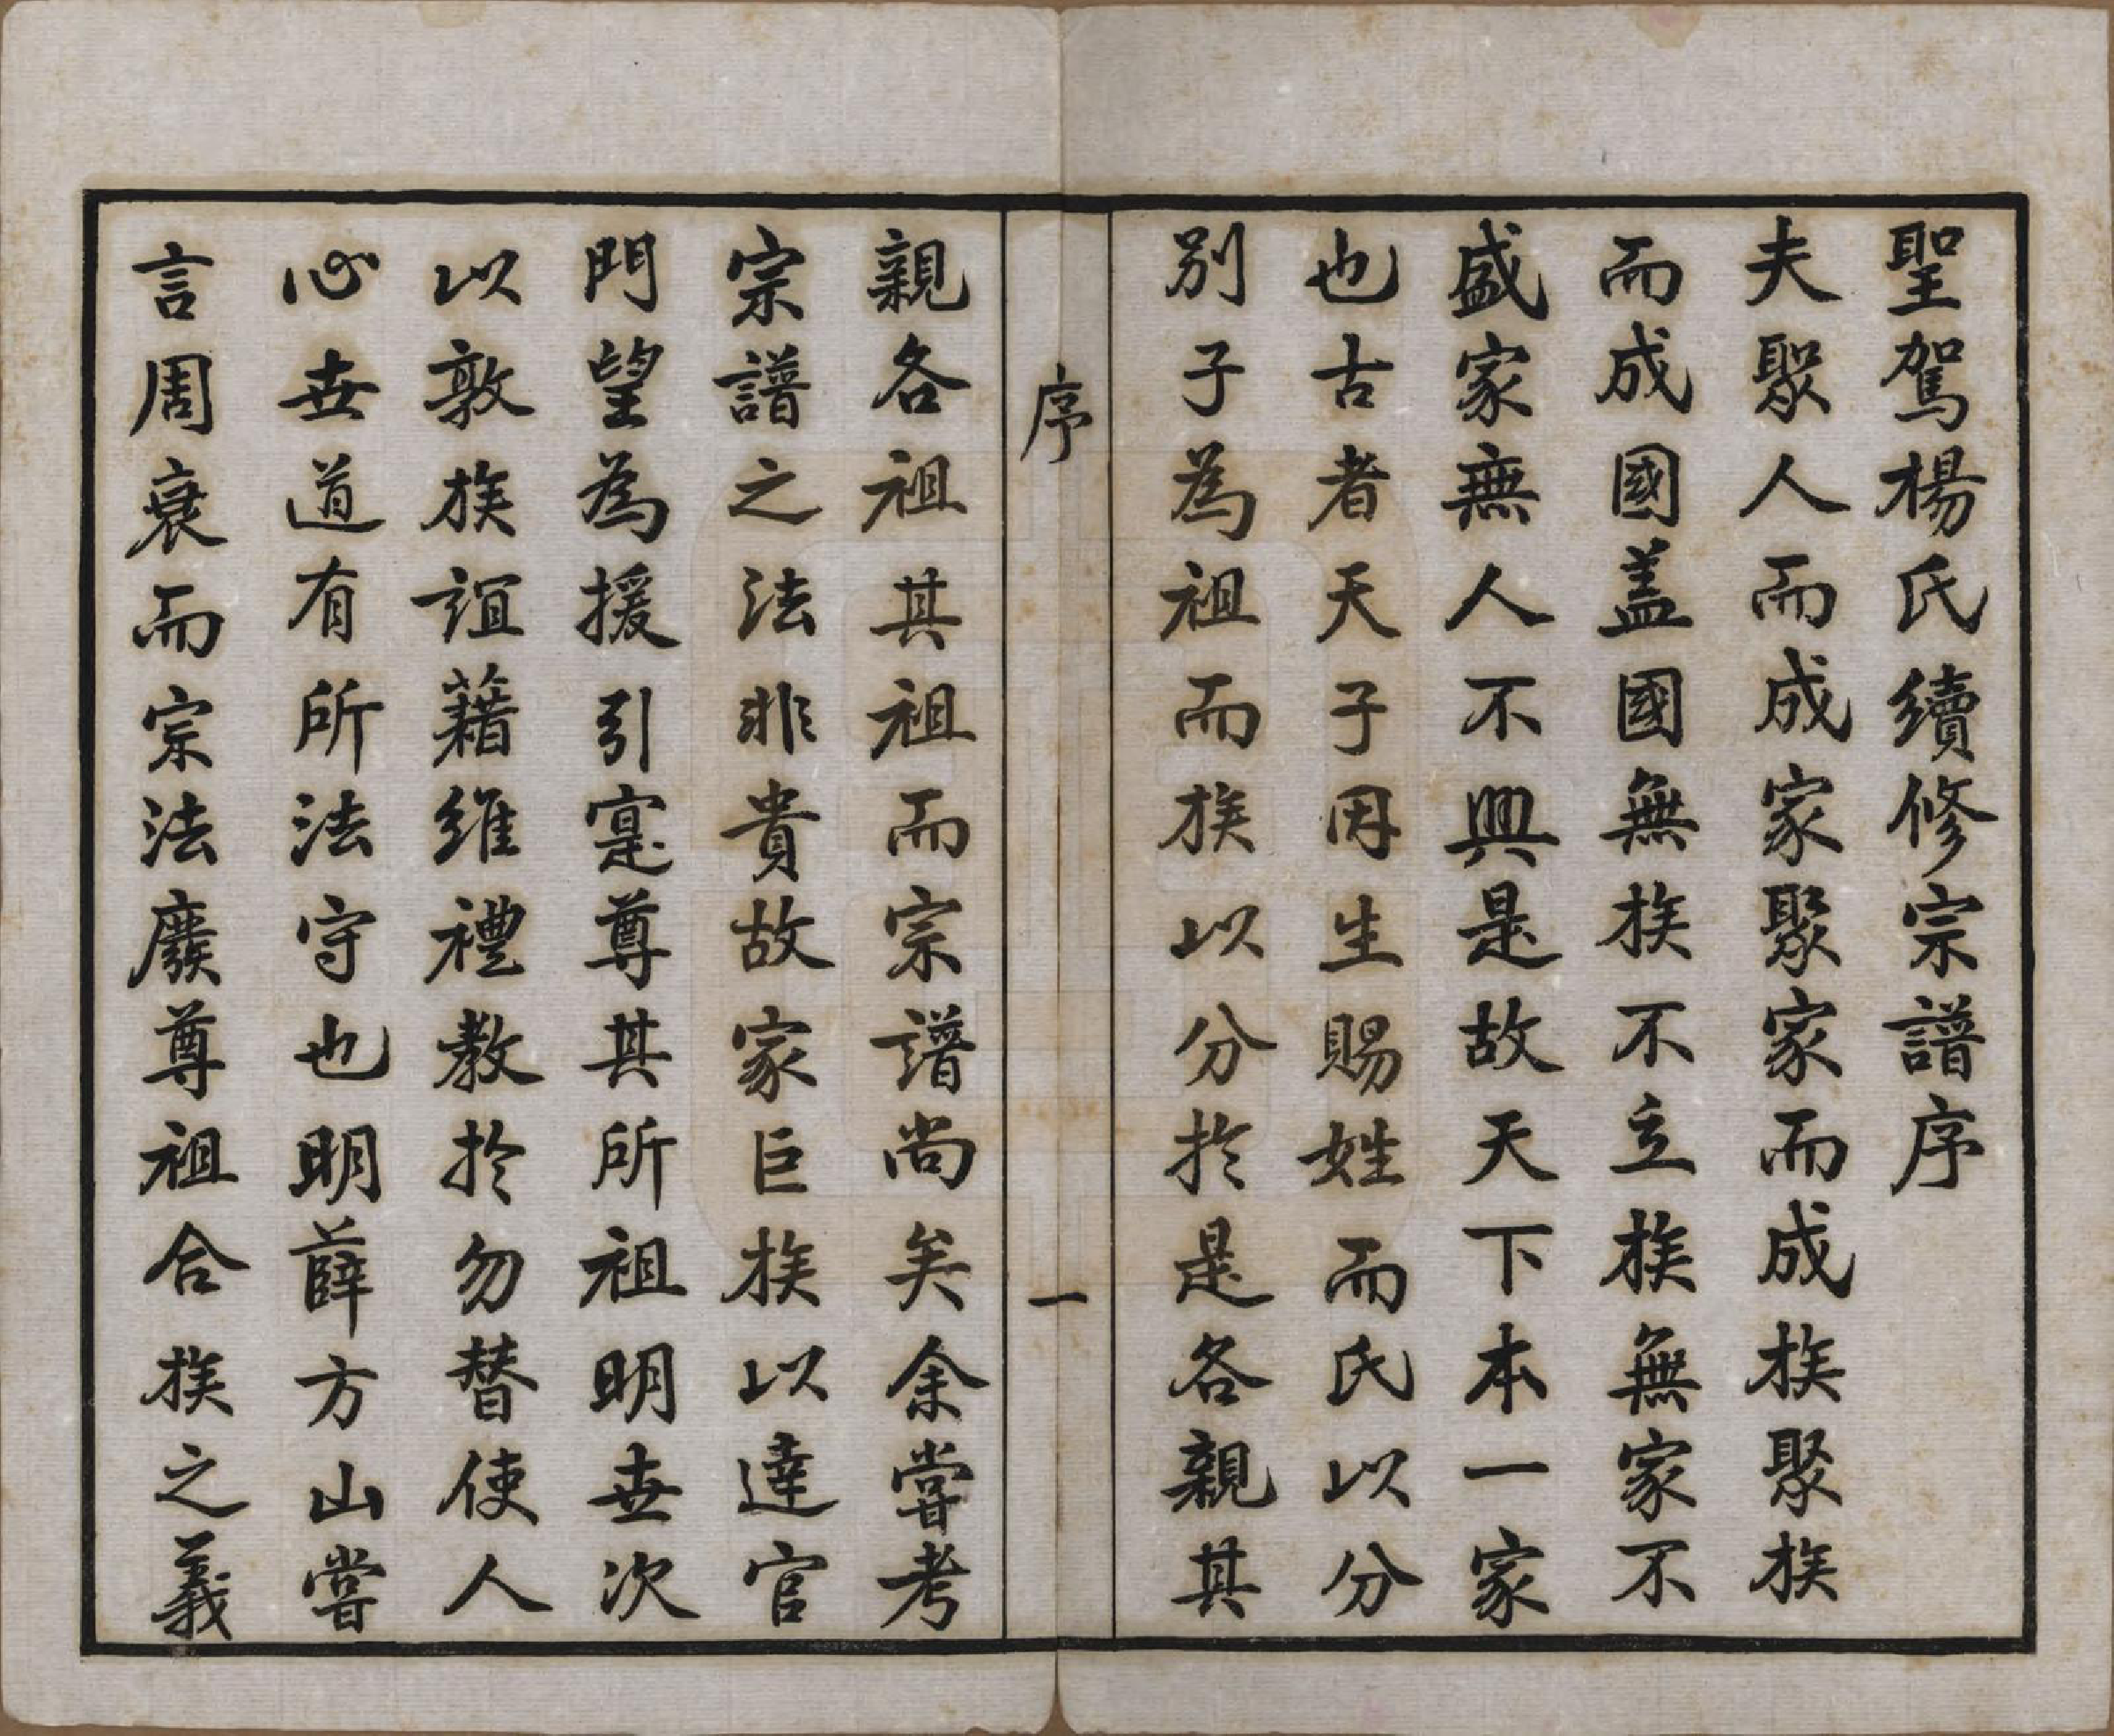 聖駕楊氏續修宗譜序
夫聚人而成家聚家而成族聚族
而成國盖國無族不立族無家不
盛家無人不興是故天下本一家
也古者天子因生賜姓而氏以分
別子為祖而族以分扵是各親其
序
一
親各祖其祖而宗譜尚矣余嘗考
宗譜之法非貴故家巨族以達官
門望為援引寔尊其所祖明世次
以敦族誼藉維禮教扵勿替使人
心世道有所法守也明薛方山嘗
言周衰而宗法廢尊祖合族之義